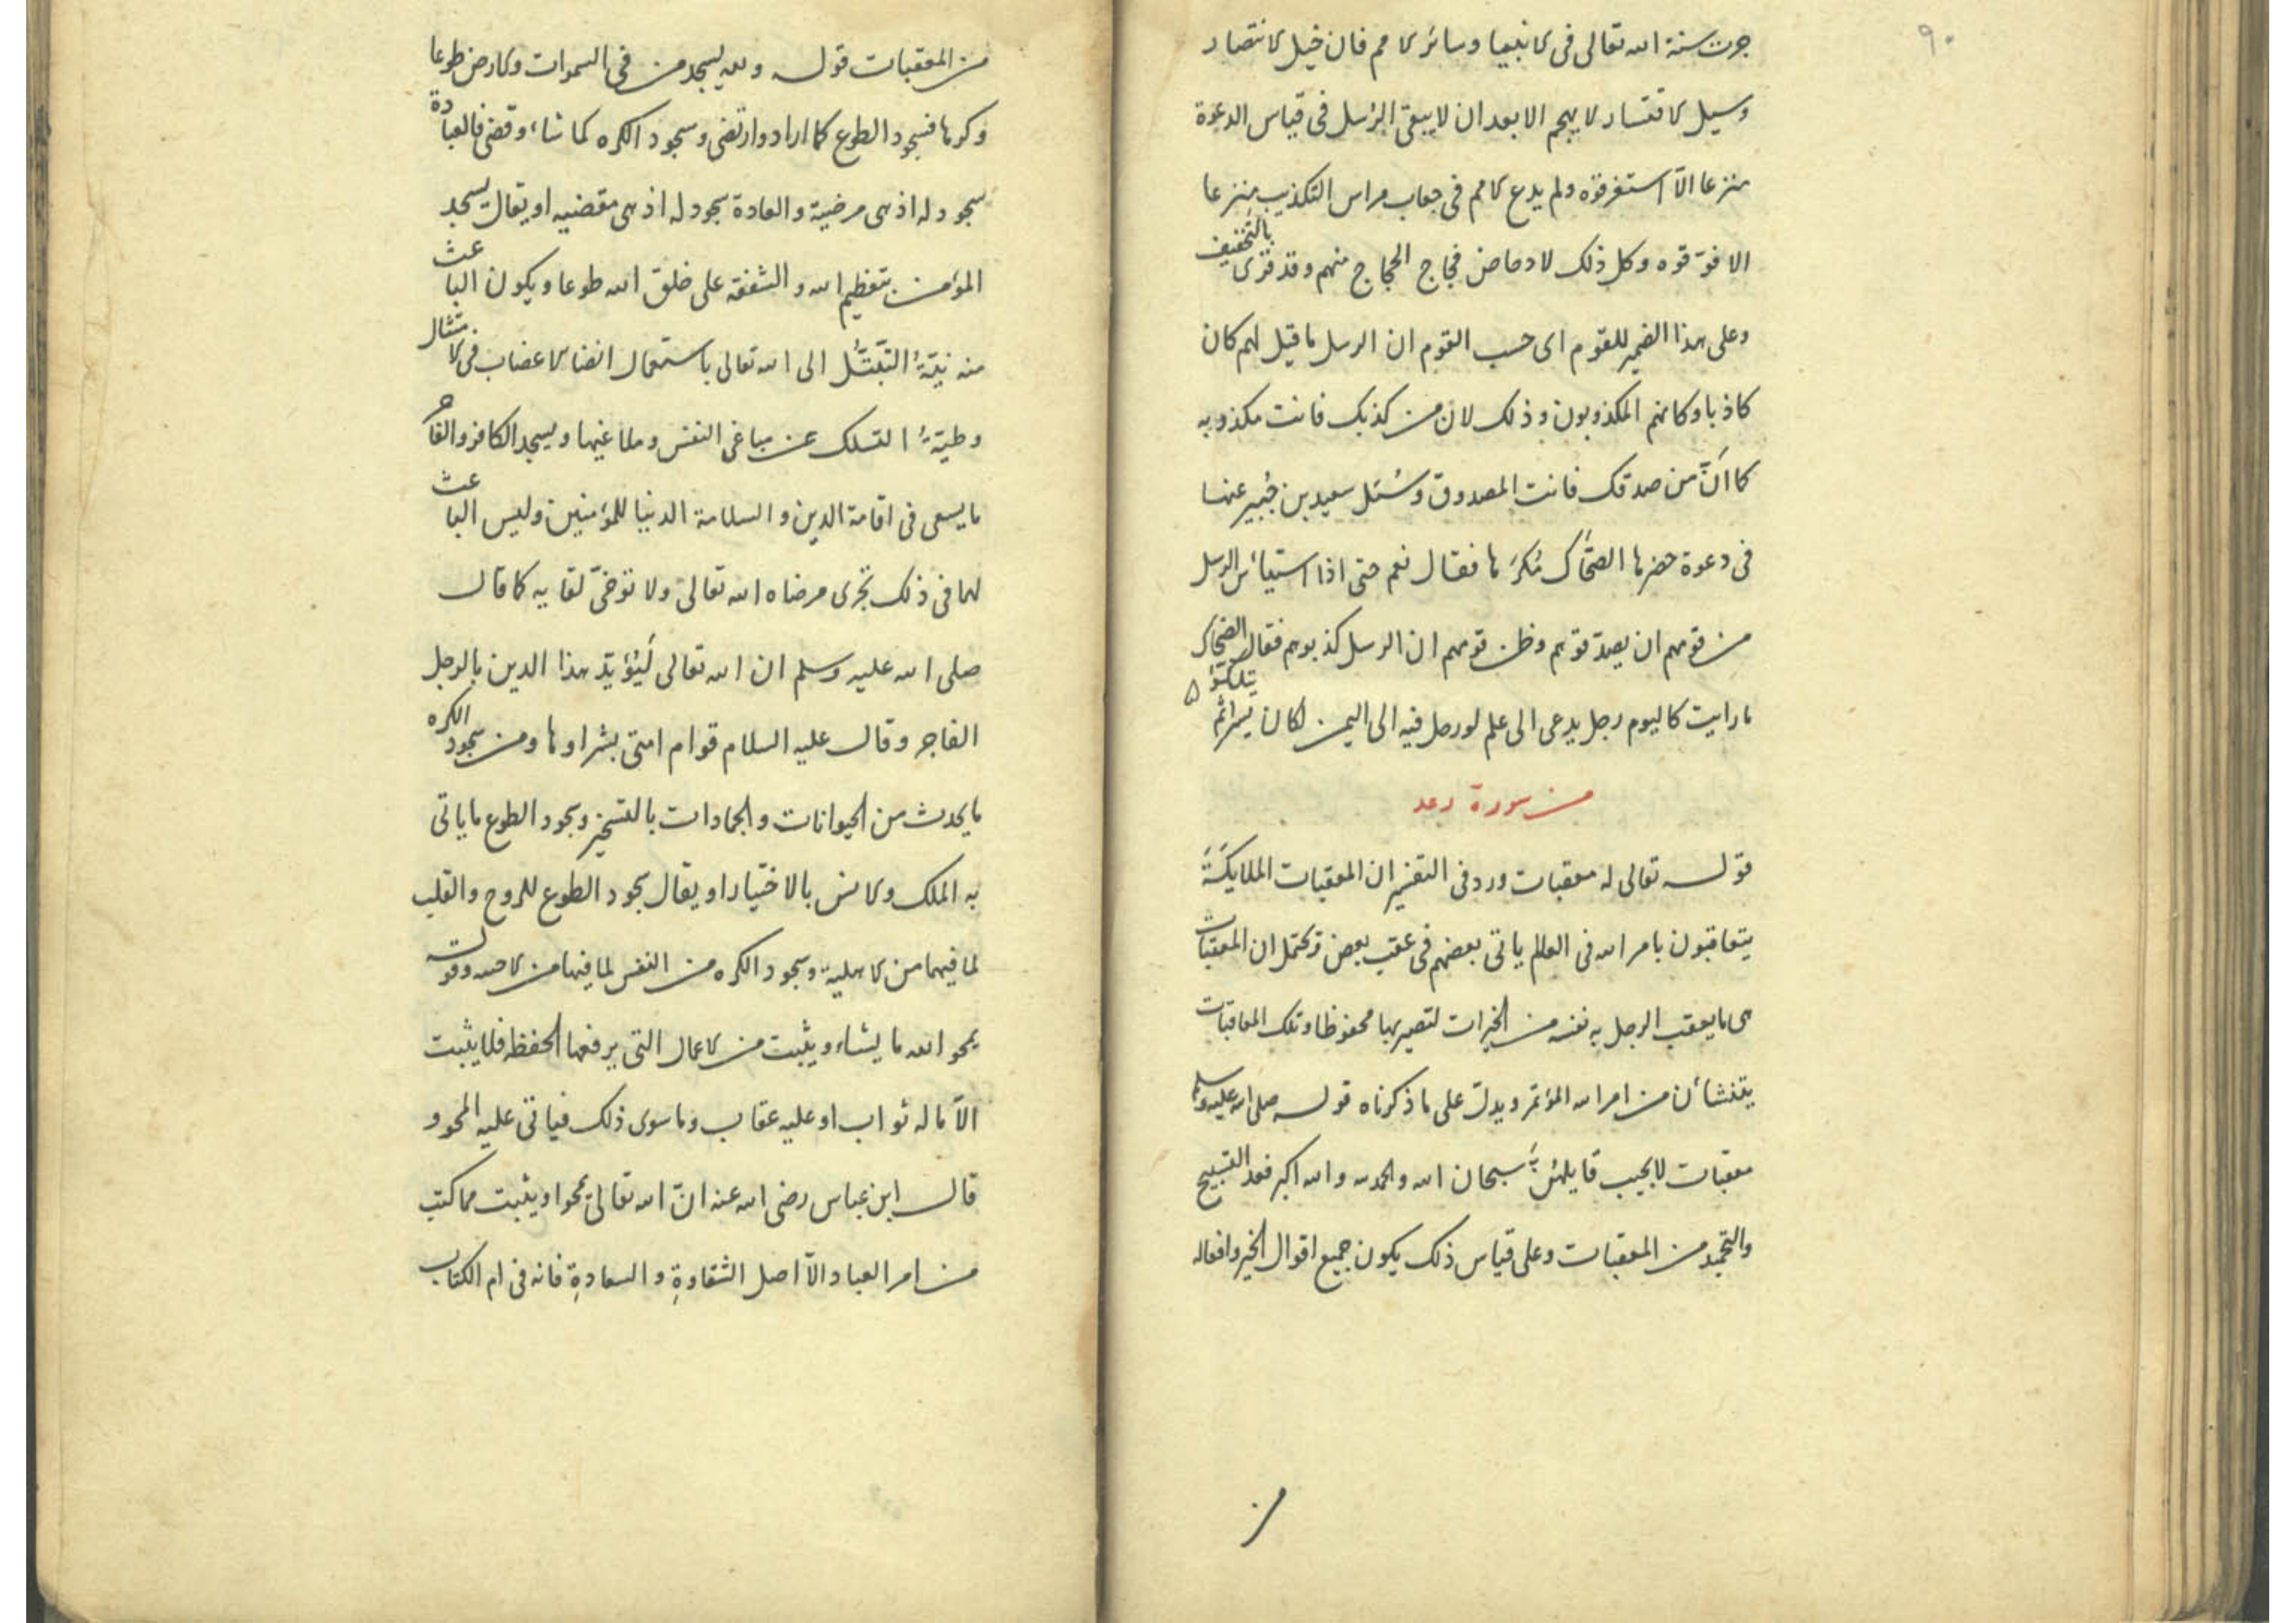 ٩٠
جرت سنة الله تعالى فى الانبيا وسائر الامم فان خيل الانتصار
وسيل الاقتسار لا يهجم الا بعد ان لا يبقى الرسل فى قياس الدعوة
منزعا الّا استغرقوه ولم يدع الامم فى جعاب مراس التكذيب منزعا
الا فوّقوه وكل ذلك لادحاض فجاج الحجاج منهم وقد قرى بالتخفيف
وعلى هذا الضمير للقوم اى حسب القوم ان الرسل ما قيل لهم كان
كاذبا وكانهم المكذوبون وذلك لان من كذبك فانت مكذوبه
كما انّ من صدقك فانت المصدوق وسُئل سعيد بن جُبير عنها
فى دعوة حضرها الضحّاك مُكرَها فقال نعم حتى اذا استيأس الرسل
من قومهم ان يصدقوهم وظن قومهم ان الرسل كذبوهم فقال الضحاك
ما رايت كاليوم رجل يدعى الى علم لو رحل فيه الى اليمن لكان يسرا ثم
من سورة رعد
قوله تعالى له معقبات ورد فى التفسير ان المعقبات الملايكة
يتعاقبون بامر الله فى العالم ياتى بعضهم فى عقب بعض ويحتمل ان المعقبات
هى ما يعقب الرجل به نفسه من الخيرات لتصير بها محفوظا وتلك المعاقبات
يتنشأن من امر الله المؤتمر ويدل على ما ذكرناه قوله صلى الله عليه وسلم
معقبات لا يخيب قايلهنّ سبحان الله والحمد لله والله اكبر فعد التسبيح
والتحميد من المعقبات وعلى قياس ذلك يكون جميع اقوال الخير وافعاله
من
من المعقبات قوله ولله يسجد من فى السموات والارض طوعا
وكرها فسجود الطوع كما اراد وارتضى وسجود الكره كما شاء وقضى فالعبادة
سجود له اذ هى مرضية والعادة سجود له اذ هى مقضيه او يقال يسجد
المؤمن بتعظيم الله والشفقة على خلق الله طوعا ويكون الباعث
منه نيّةُ التبتّل الى الله تعالى باستعمال الاعضاب فى الامتثال
وطيّةُ التسلك عن مباغى النفس وملاغيها ويسجد الكافر والفاجر
ما يسعى فى اقامة الدين والسلامة الدنيا للمؤمنين وليس الباعث
لهما فى ذلك تحرى مرضاه الله تعالى ولا توخىّ لقايه كما قال
صلى الله عليه وسلم ان الله تعالى ليُؤيّد هذا الدين بالرجل
الفاجر وقال عليه السلام قوام امتى بشراوها ومن سجود الكره
ما يحدث من الحيوانات والجمادات بالتسخير وسجود الطوع ما ياتى
به الملك والانس بالاختيار او يقال سجود الطوع للروح والقلب
لما فيهما من الاهلية وسجود الكره من النفس لما فيها من
يمحو الله ما يشاء ويثبت من الاعمال التى يرفعها الحفظه فلا يثبت
الّا ما له ثواب او عليه عقاب وما سوى ذلك فياتى عليه المحو و
قال ابن عباس رضى الله عنه انّ الله تعالى يمحوا ويثبت مما كتب
من امر العباد الّا اصل الشقاوة والسعادة فانه فى ام الكتاب